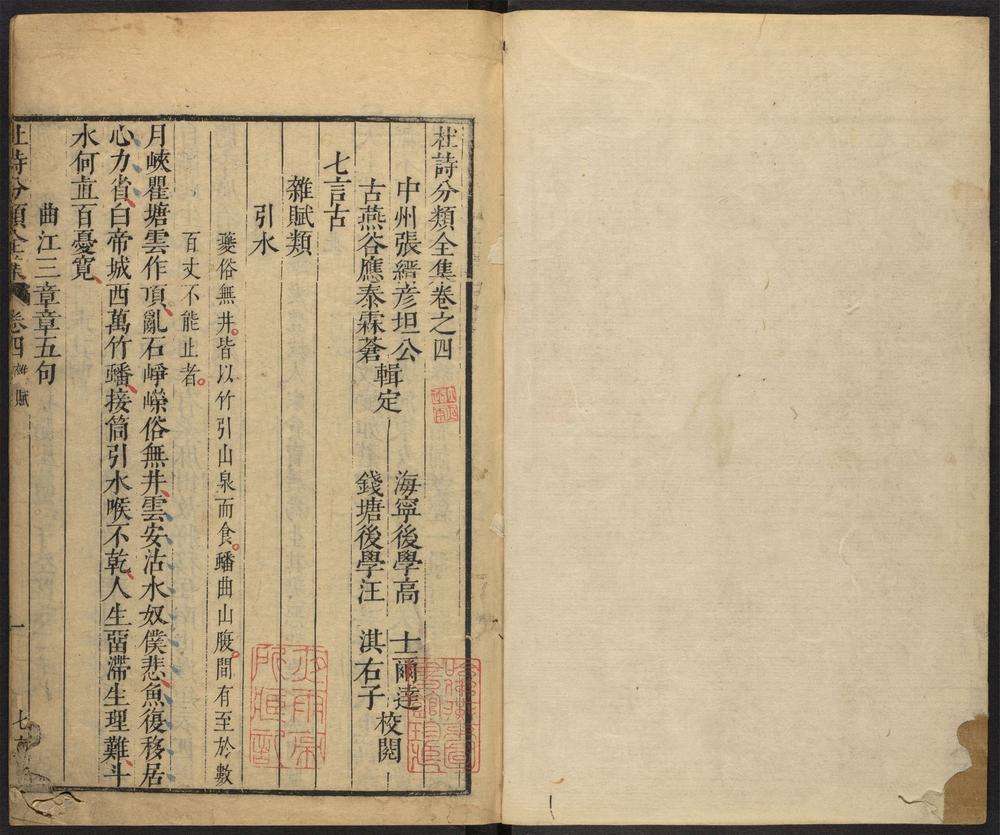 杜詩分類全集卷之四
中州張縉彥坦公
古燕谷應泰霖蒼
輯定
海寧後學高 士爾達
錢塘後學汪 淇右子
校閱
七言古
雜賦類
引水
夔俗無井皆以竹引山泉而食蟠曲山腹間有至於數
百丈不能止者
月峽瞿塘雲作頂亂石崢嶸俗無井雲安沽水奴僕悲魚復移居
心力省白帝城西萬竹蟠接筒引水喉不乾人生畱滯生理難斗
水何直百憂寬
曲江三章章五句
杜詩分類全集 卷四 雜賦 一